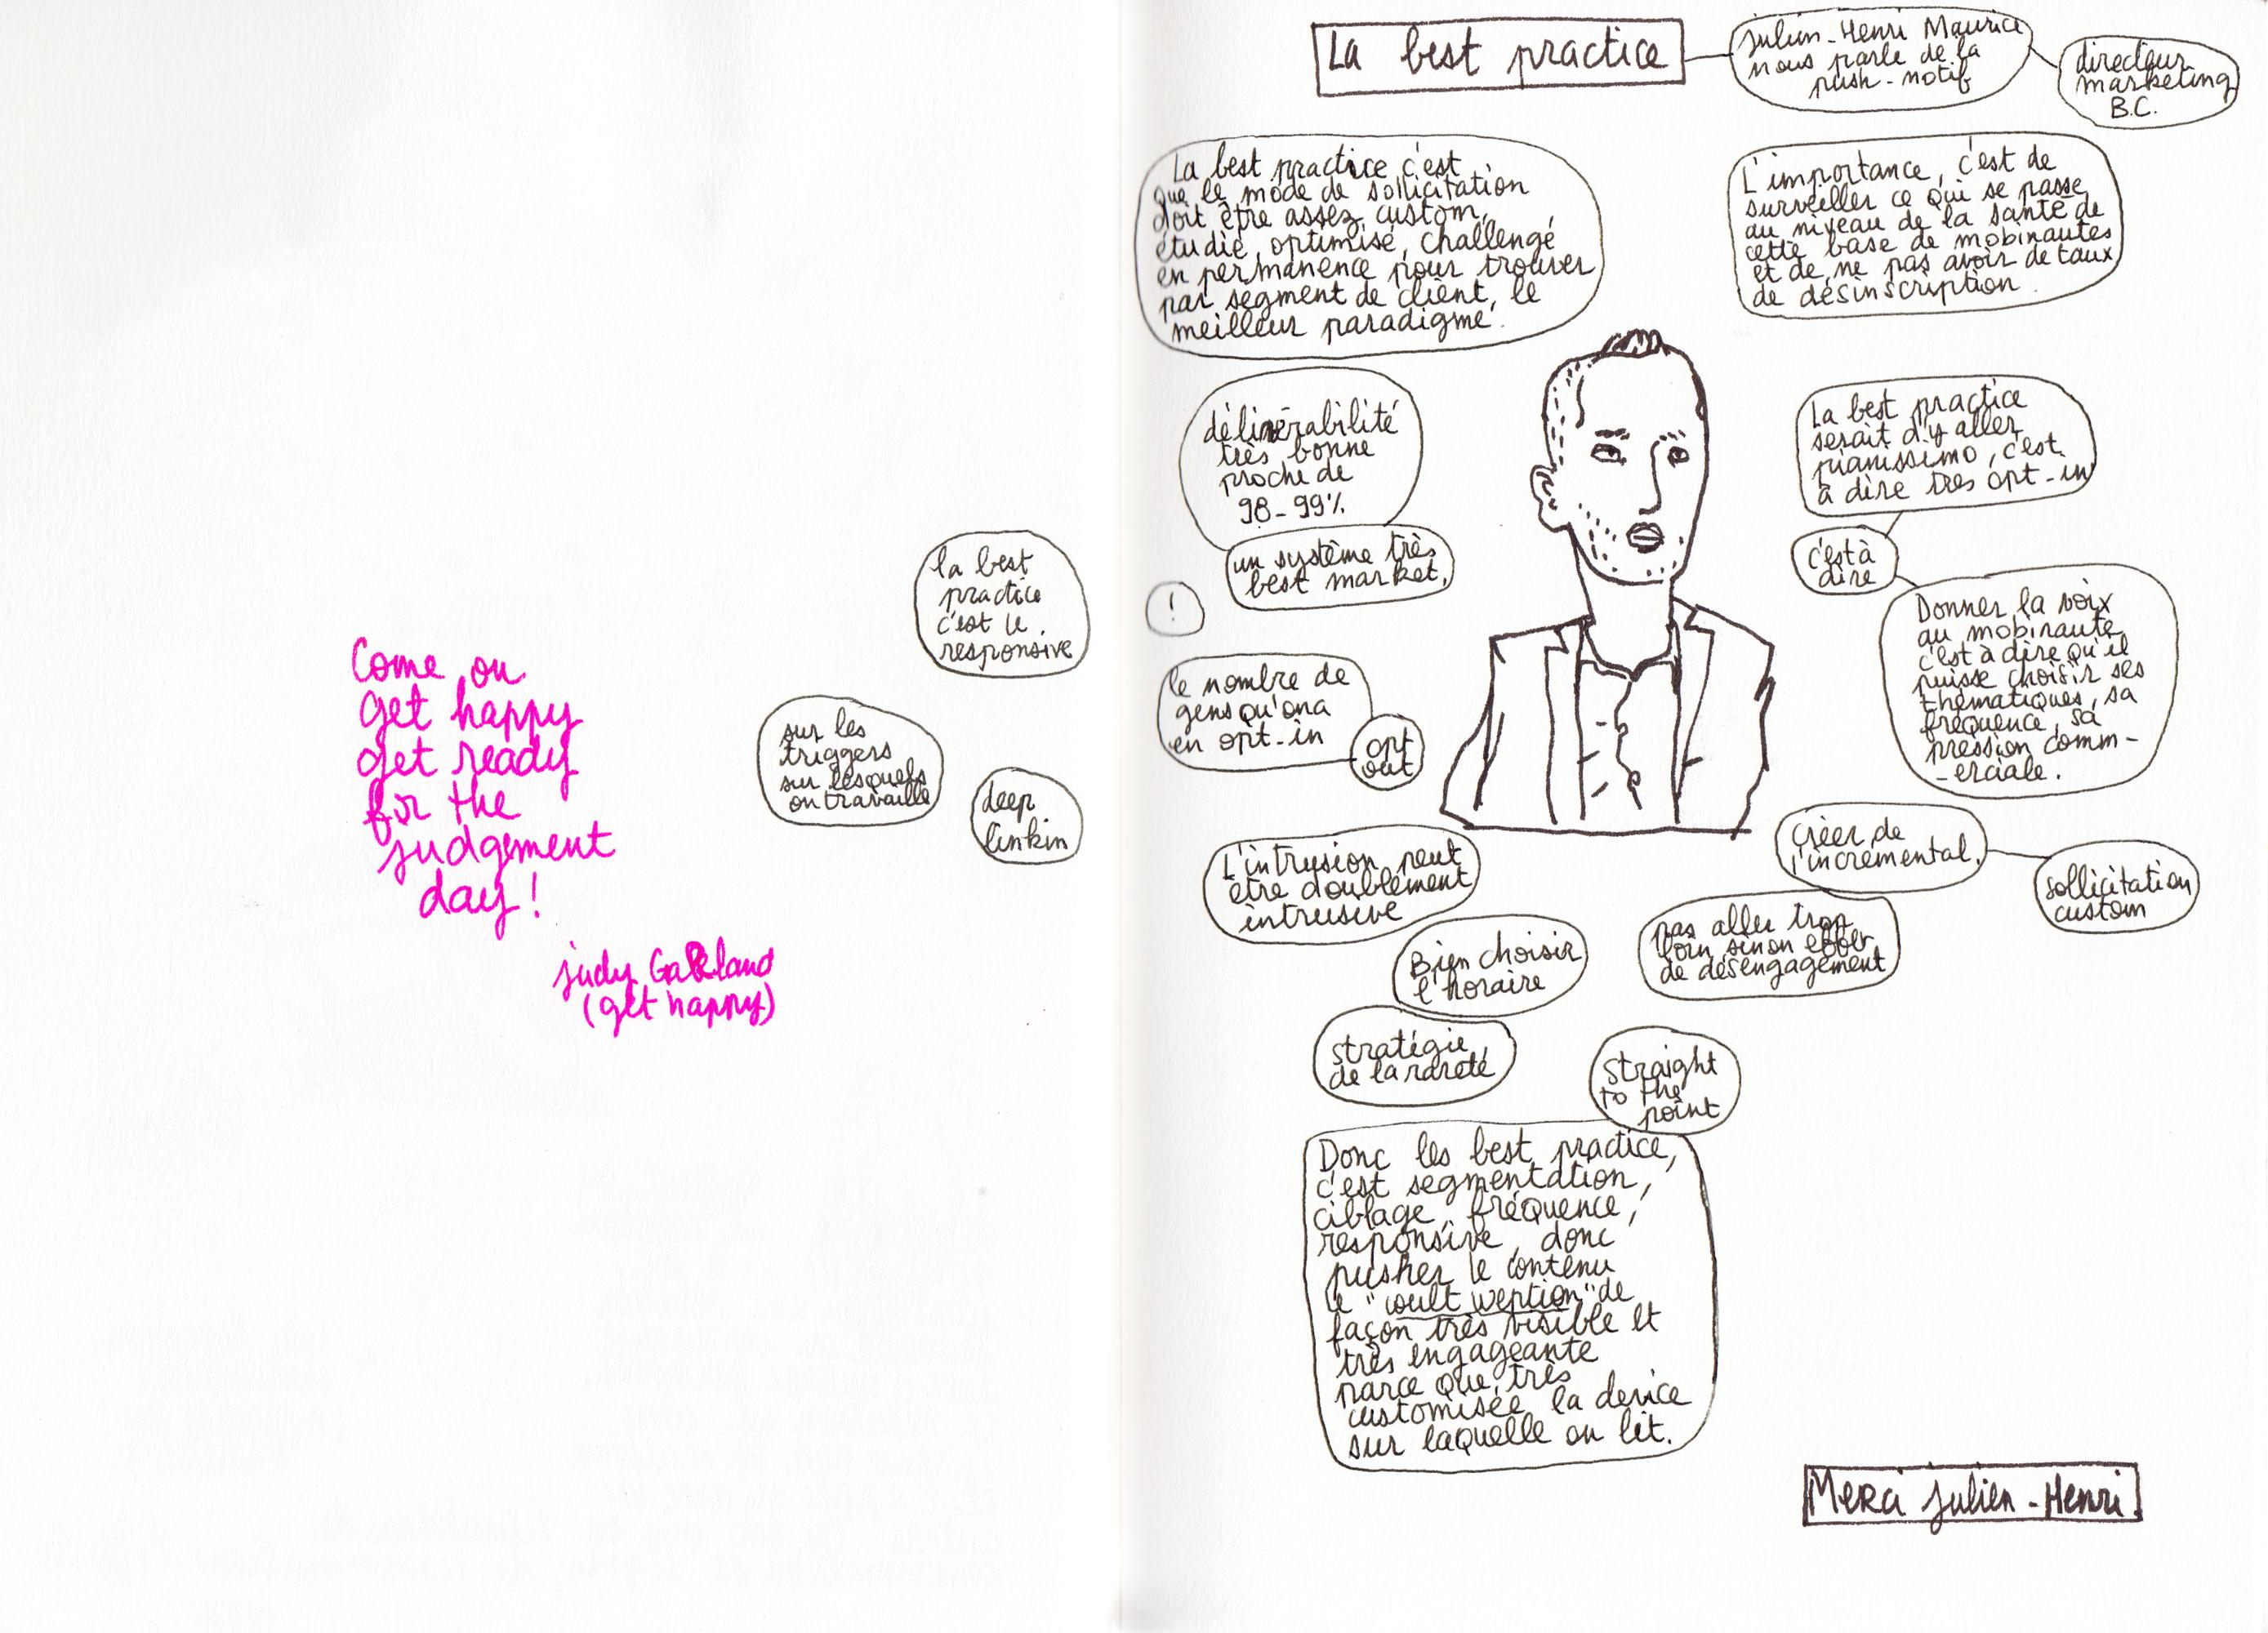 Come on
get happy
get ready
for the
judgement
day!
judy GaRland
(get happy)
la best
practice
c'est le
responsive
sur les
triggers
sur lesquels
on travaille
deep
linkin
La best practice
julien-Henri Maurice
nous parle de la
push-notif
directeur
marketing
B.C.
La best practice c'est
que le mode de sollicitation
doit être assez custom,
étudié, optimisé, challengé
en permanence pour trouver
par segment de client, le
meilleur paradigme.
L'importance, c'est de
surveiller ce qui se passe
au niveau de la santé de
cette base de mobinautes
et de ne pas avoir de taux
de désinscription.
délivérabilité
très bonne
proche de
98-99%
un système très
best market.
!
La best practice
serait d'y aller
pianissimo, c'est
à dire très opt-in
c'est à
dire
Donner la voix
au mobinaute
c'est à dire qu'il
puisse choisir ses
thématiques, sa
fréquence, sa
pression comm-
-erciale.
le nombre de
gens qu'on a
en opt-in
opt
out
L'intrusion peut
être doublement
intrusive
Créer de
l'incremental.
sollicitation
custom
Bien choisir
l'horaire
pas aller trop
loin sinon effet
de désengagement
stratégie
de la rareté
straight
to the
point
Donc les best practice,
c'est segmentation,
ciblage, fréquence,
responsive, donc
pusher le contenu
le "coult weption" de
façon très visible et
très engageante
parce que très
customisée la device
sur laquelle on lit.
Merci julien-Henri.